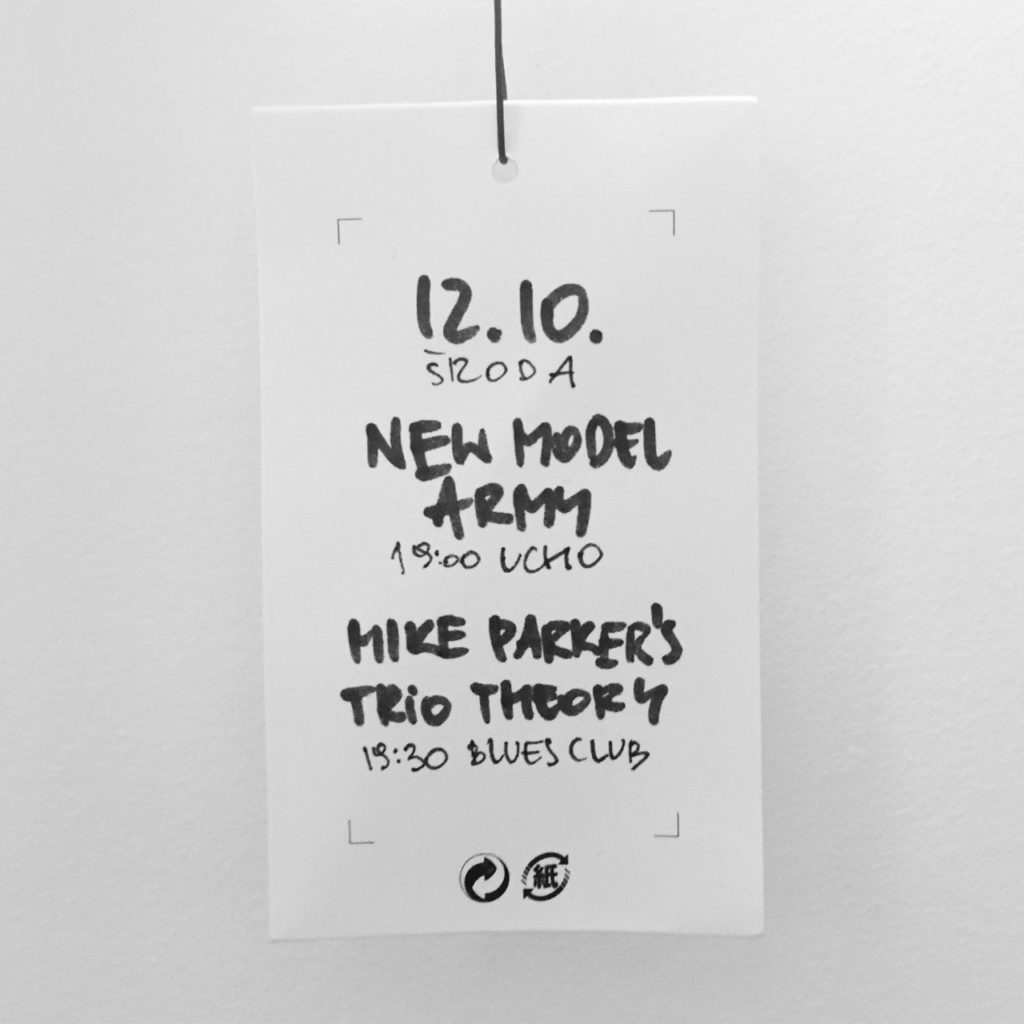 12.10.
ŚRODA
NEW MODEL
ARMY
19:00 UCHO
MIKE PARKER'S
TRIO THEORY
19:30 BLUES CLUB
紙